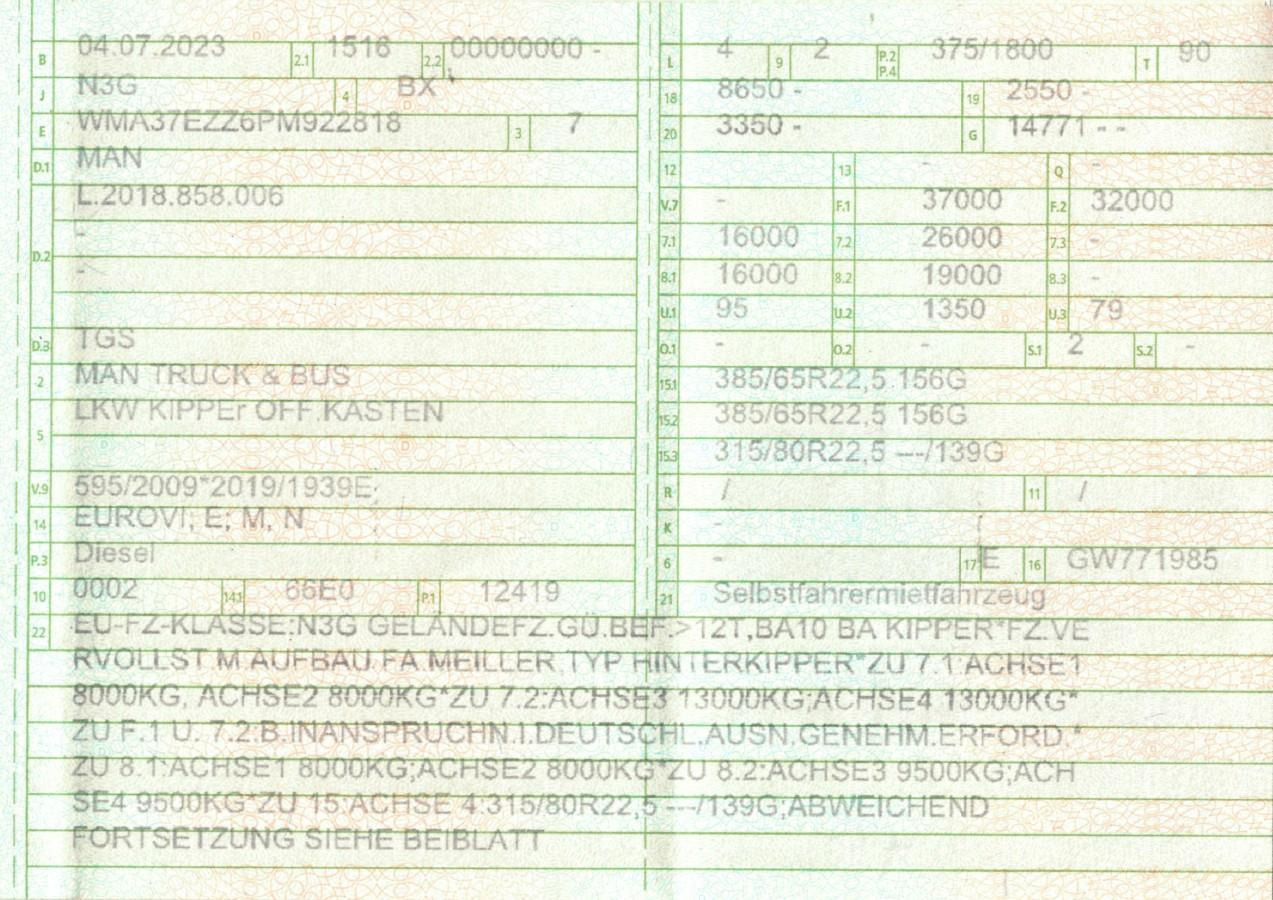 B 04.07.2023 2.1 1516 2.2 00000000 -
J N3G 4 BX
E WMA37EZZ6PM922818 3 7
D.1 MAN
L.2018.858.006
-
D.2
-
D.3 TGS
2 MAN TRUCK & BUS
LKW KIPPEr OFF.KASTEN
5
V.9 595/2009*2019/1939E;
14 EUROVI; E; M, N
P.3 Diesel
10 0002 14.1 66E0 P.1 12419
L 4 9 2 P.2 P.4 375/1800 T 90
18 8650 - 19 2550 -
20 3350 - G 14771 - -
12 13 - Q -
V.7 - F.1 37000 F.2 32000
7.1 16000 7.2 26000 7.3 -
8.1 16000 8.2 19000 8.3 -
U.1 95 U.2 1350 U.3 79
O.1 - O.2 - S.1 2 S.2 -
15.1 385/65R22,5 156G
15.2 385/65R22,5 156G
15.3 315/80R22,5 ---/139G
R / 11 /
K -
6 - 17 E 16 GW771985
21 Selbstfahrermietfahrzeug
22 EU-FZ-KLASSE:N3G GELÄNDEFZ.GÜ.BEF.>12T,BA10 BA KIPPER*FZ.VE
RVOLLST.M.AUFBAU.FA.MEILLER,TYP HINTERKIPPER*ZU 7.1:ACHSE1
8000KG, ACHSE2 8000KG*ZU 7.2:ACHSE3 13000KG;ACHSE4 13000KG*
ZU F.1 U. 7.2:B.INANSPRUCHN.I.DEUTSCHL.AUSN.GENEHM.ERFORD.*
ZU 8.1:ACHSE1 8000KG;ACHSE2 8000KG*ZU 8.2:ACHSE3 9500KG;ACH
SE4 9500KG*ZU 15:ACHSE 4:315/80R22,5 ---/139G;ABWEICHEND
FORTSETZUNG SIEHE BEIBLATT